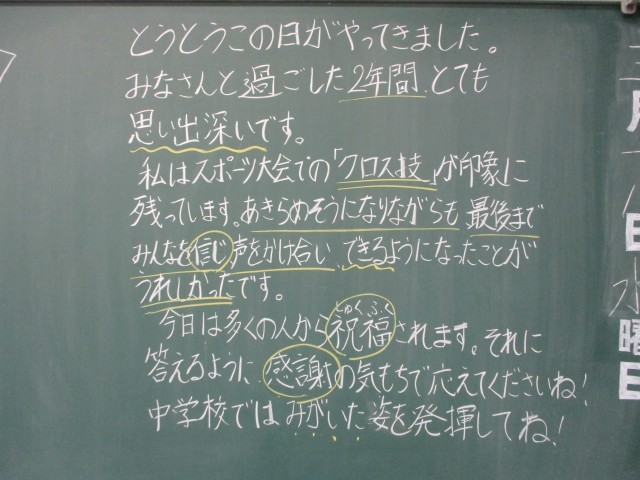 とうとうこの日がやってきました。
みなさんと過ごした2年間、とても
思い出深いです。
私はスポーツ大会での「クロス技」が印象に
残っています。あきらめそうになりながらも最後まで
みんなを信じ声をかけ合い、できるようになったことが
うれしかったです。
しゅくふく
今日は多くの人から祝福されます。それに
答えるように感謝の気もちで応えてくださいね!
中学校ではみがいた姿を発揮してね!
月
日
水
曜
日